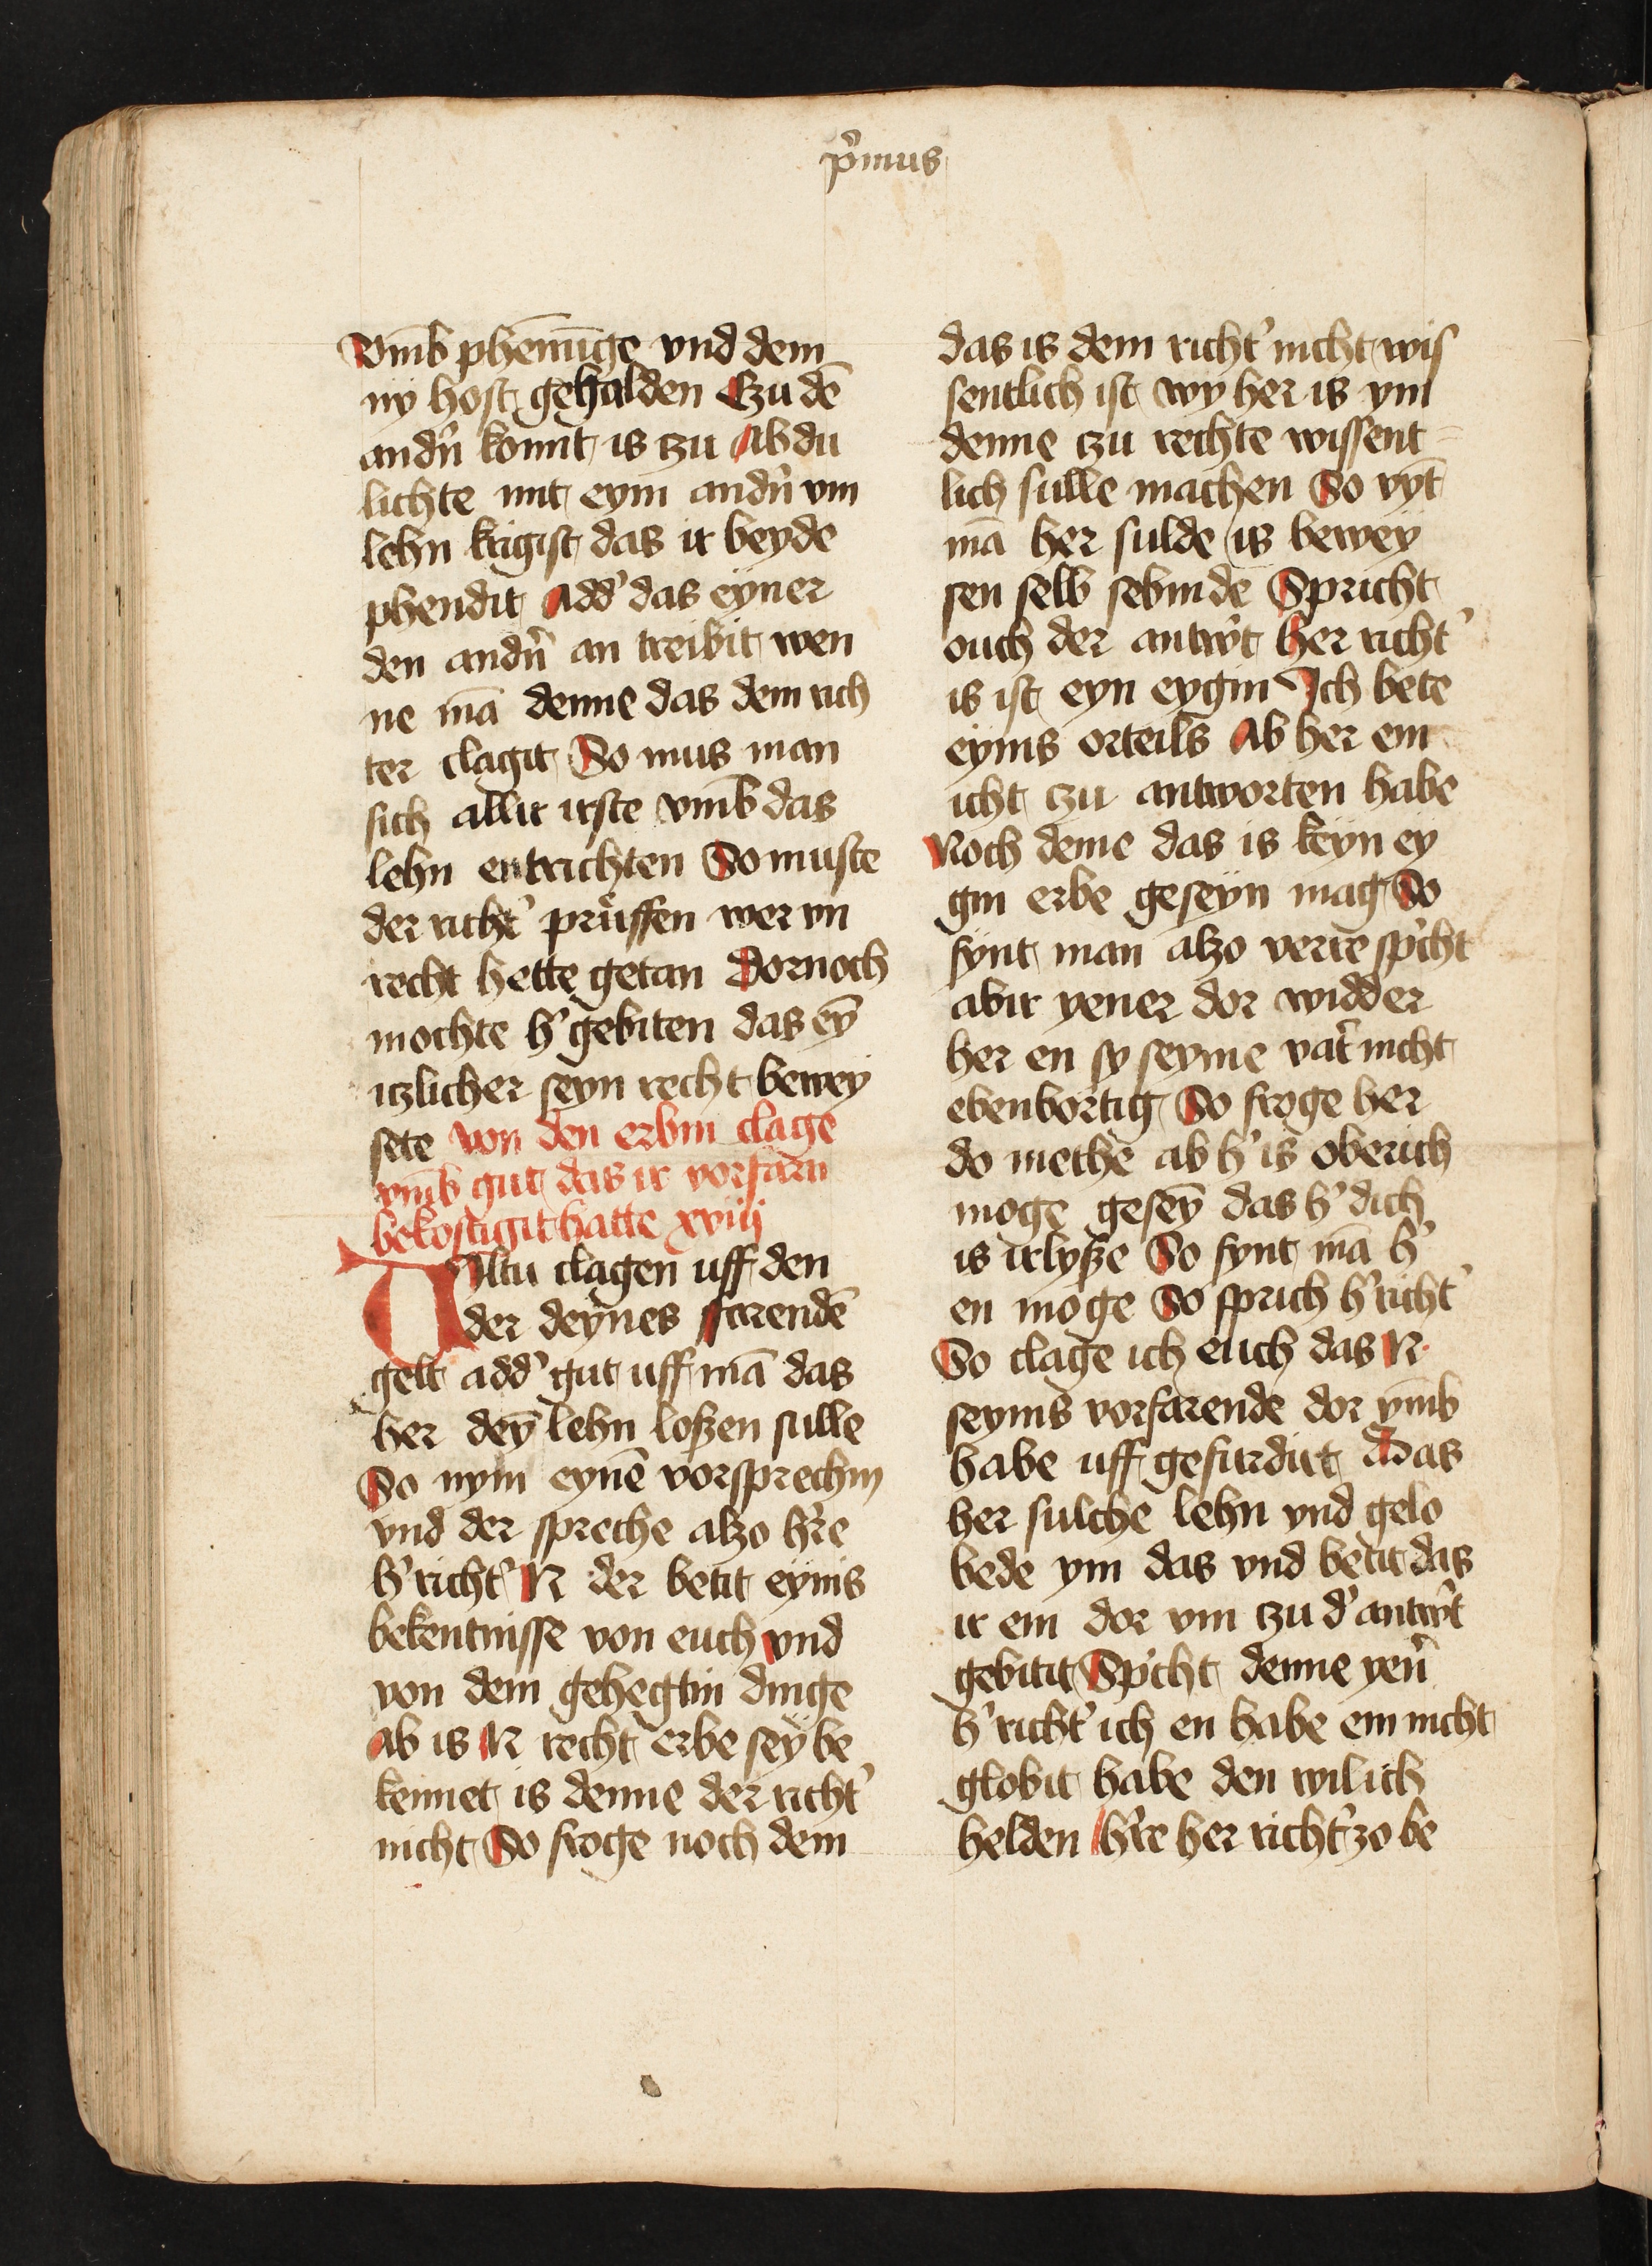 p̉mus
Vm̄b phēnīge vnd dem
ny host gehalden Czu dē
andn̉ komt is czu Ab du
lichte mit eym andn̉ vm
lehn krigist das ir beyde
phendit Add' das eyner
den andn̉ an treibit wen
ne mā denne das dem rich
ter clagit So mus man
sich allir irste vm̄b das
lehn entrichten So muste
der richt' prüffen wer im
recht hette getan Dornoch
mochte h' gebiten das eȳ
itzlicher seyn recht bewey
sete von den erbin clage
vm̄b gut das ir vorfarn
bekostigit hatte xviij
Wiltu clagen uff den
der deynes farendē
gelt add' gut uff mā das
her deȳ lehn loßen sulle
So nym eynē vorsprechin
vnd der spreche alzo hr̉e
h' richt' N der betit eynis
bekentnisse von euch vnd
von dem gehegtin dinge
Ab is N recht erbe sey be
kennet is denne der richt'
nicht So froge noch dem
das is dem richt' nicht wis
sentlich ist wy her is ym
denne czu rechte wissent
lich sulle machen So vyt
mā her sulde is bewey
sen selb sebinde Spricht
ouch der antwt̉ her richt'
is ist eyn eygin Ich bete
eynis orteils Ab her em
icht czu antworten habe
Noch deme das is keyn ey
gin erbe geseyn mag So
fynt man alzo verre sp̉cht
abir yener dor widder
her en sy seyme vat̉ nicht
ebenbortig So froge her
do methe ab h' is oberich
moge geseȳ das h' dich
is irlyße So fynt mā h'
en moge So sprich h' richt'
So clage ich euch das N
seynis vorfarende dor vm̄b
habe uff gefurdirt Das
her sulche lehn vnd gelo
bede ym das vnd betit das
ir em dor vm czu d' antwt̉
gebitit Sp̉cht denne yen̉
h' richt' ich en habe em nicht
globit habe den wil ich
helden hr̉e her richt' zo be